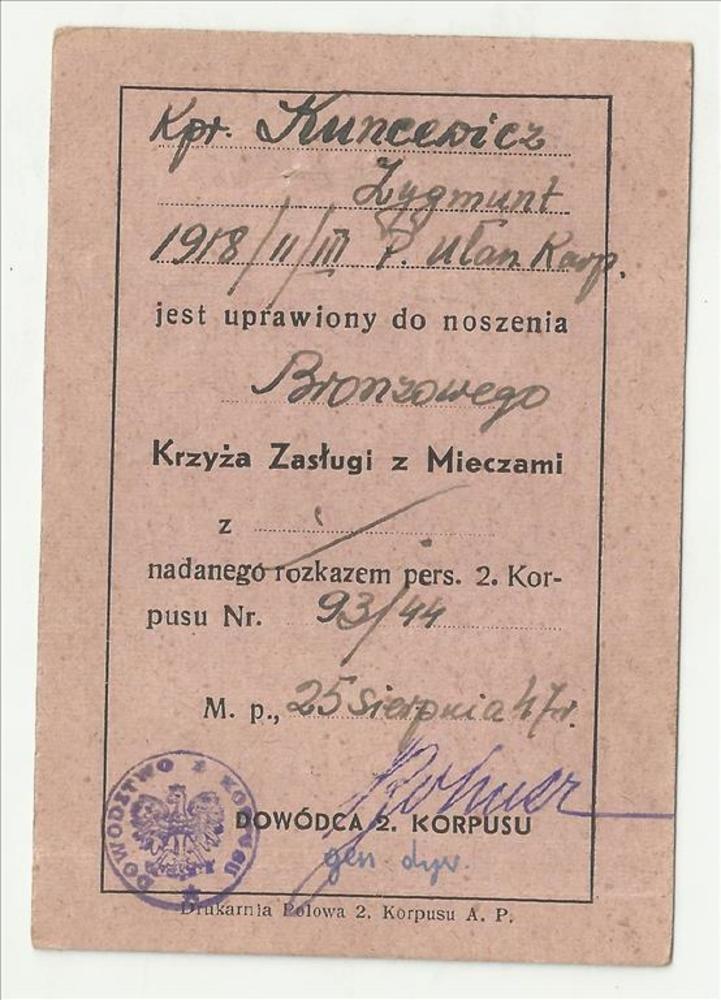 Kpr. Kuncewicz
Zygmunt
1918/II/III P. Ułan Karp.
jest uprawiony do noszenia
Bronzowego
Krzyża Zasługi z Mieczami
z
nadanego rozkazem pers. 2. Kor-
pusu Nr. 93/44
M. p., 25 sierpnia 47r.
DOWÓDZTWO 2 KORPUSU
DOWÓDCA 2. KORPUSU
gen dyw.
Drukarnia Polowa 2. Korpusu A. P.